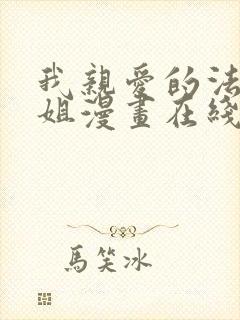 我親愛的法
姐漫畫在綫
馬笑冰